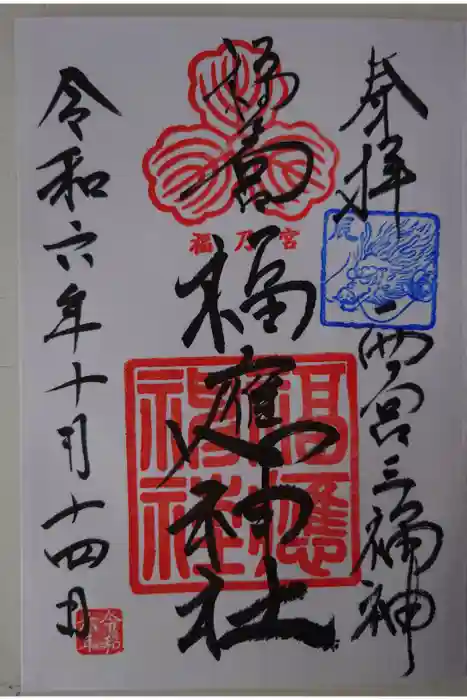 奉拝
西宮三福神
福乃宮
福應神社
福應
神社
令和六年十月十四日
令和
六年